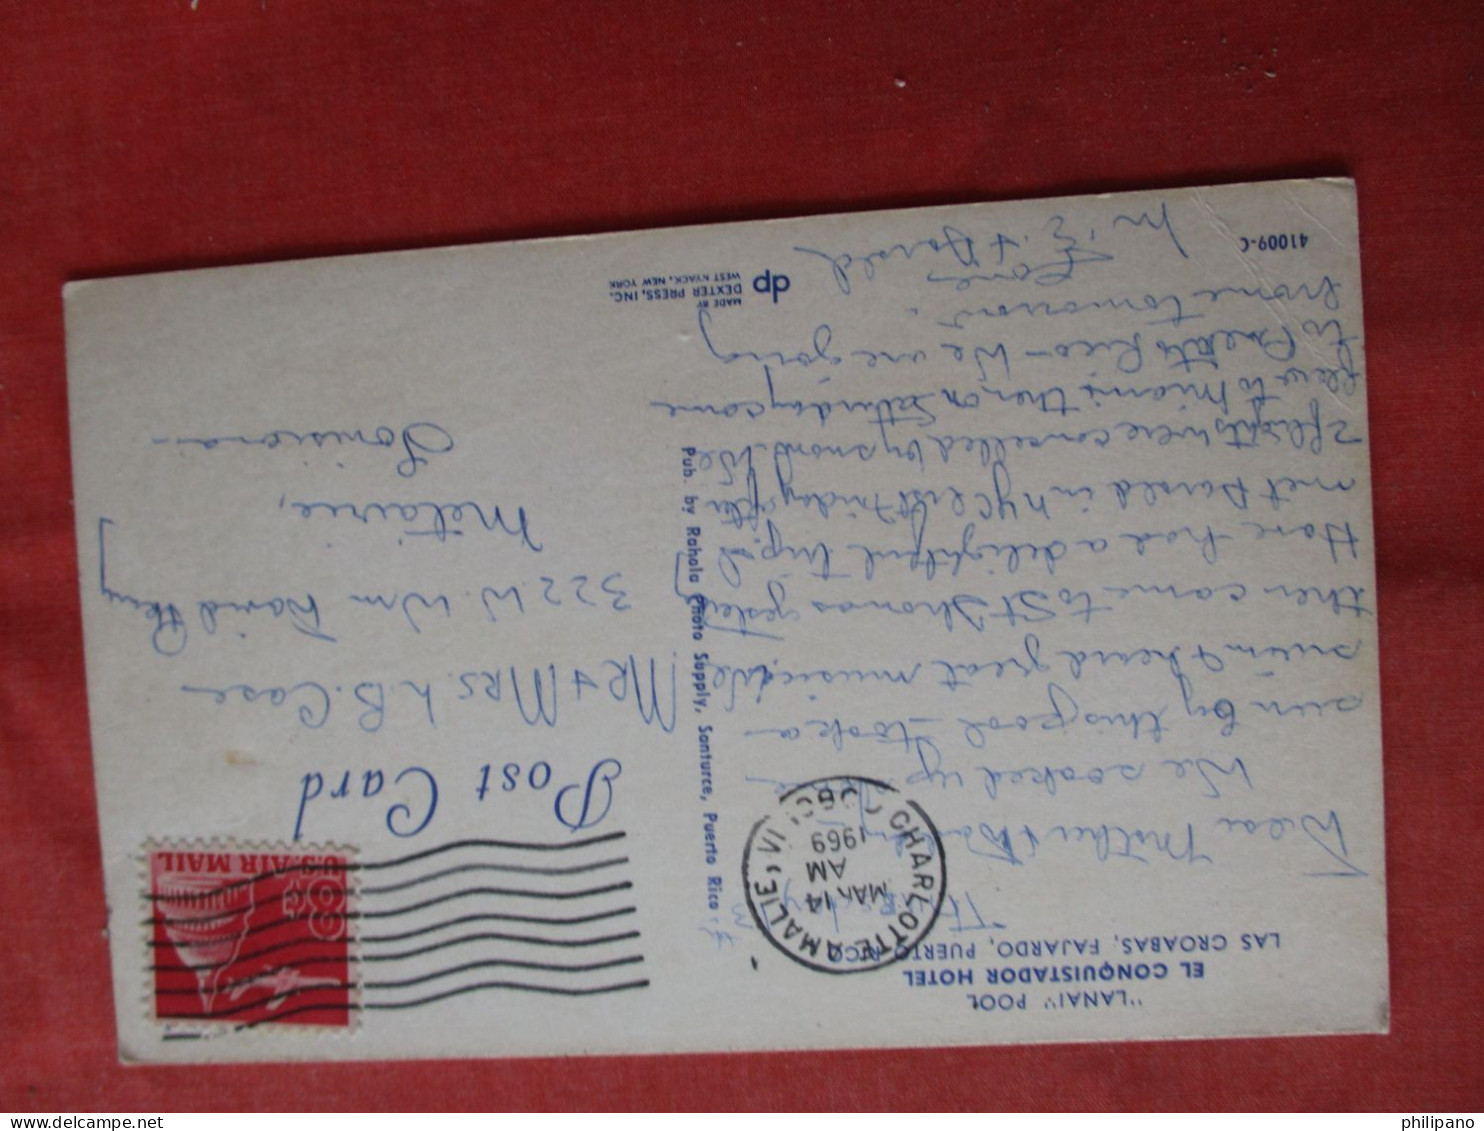 "LANAI" POOL
EL CONQUISTADOR HOTEL
LAS CROABAS, FAJARDO, PUERTO RICO
Dear Mother &
We soaked up
sun by this pool - took a
swim & heard great music. We
then came to St Thomas yesterday
Have had a delightful trip. I
met Darold in NYC last Friday after
2 flights were cancelled by snow. We
flew to Miami then on Saturday came
to Puerto Rico - We are going
home tomorrow.
Love
M'E. & Darold
41009-C
CHARLOTTE AMALIE, VI
MAR 14
AM
1969
Pub. by Rahola Photo Supply, Santurce, Puerto Rico
dp
MADE BY
DEXTER PRESS, INC.
WEST NYACK, NEW YORK
U.S. AIR MAIL
8¢
Post Card
Mr & Mrs. L B. Case
322 W. Wm David Pkwy
Metairie,
Louisiana
philipano